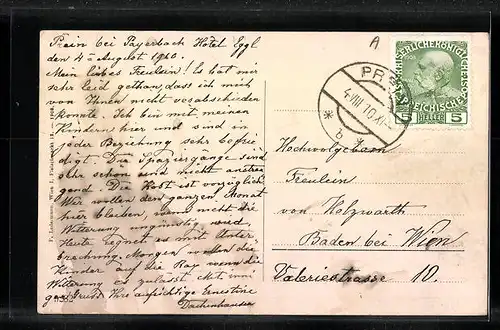 Prein bei Payerbach Hotel Eggl
den 4 August 1910.
Mein liebes Freulein! Es hat mir
sehr leid gethan, dass ich mich
von Ihnen nicht verabschieden
konnte. Ich bin mit meinen
Kindern hier und sind in
jeder Beziehung sehr befrie
digt. Die Spaziergänge sind
sehr schön und nicht anstren
gend. Die Kost ist vorzüglich.
Wir wollen den ganzen Monat
hier bleiben, wenn nicht die
Witterung ungünstig wird.
Heute regnet es mit Unter
brechung. Morgen wollen die
Kinder auf die Rax wenn die
Witterung es zulässt. Mit
Gruss Ihre aufrichtige Ernestine
Dachenhausen
A
KAISERLICHE KÖNIGL
ÖSTERREICHISCHE
5 HELLER 5
PR
4 VIII 10
* b *
Hochwolgeboren
Freulein
von Holzwarth
Baden bei Wien
Valeriestrasse 10.
P. Ledermann, Wien I.